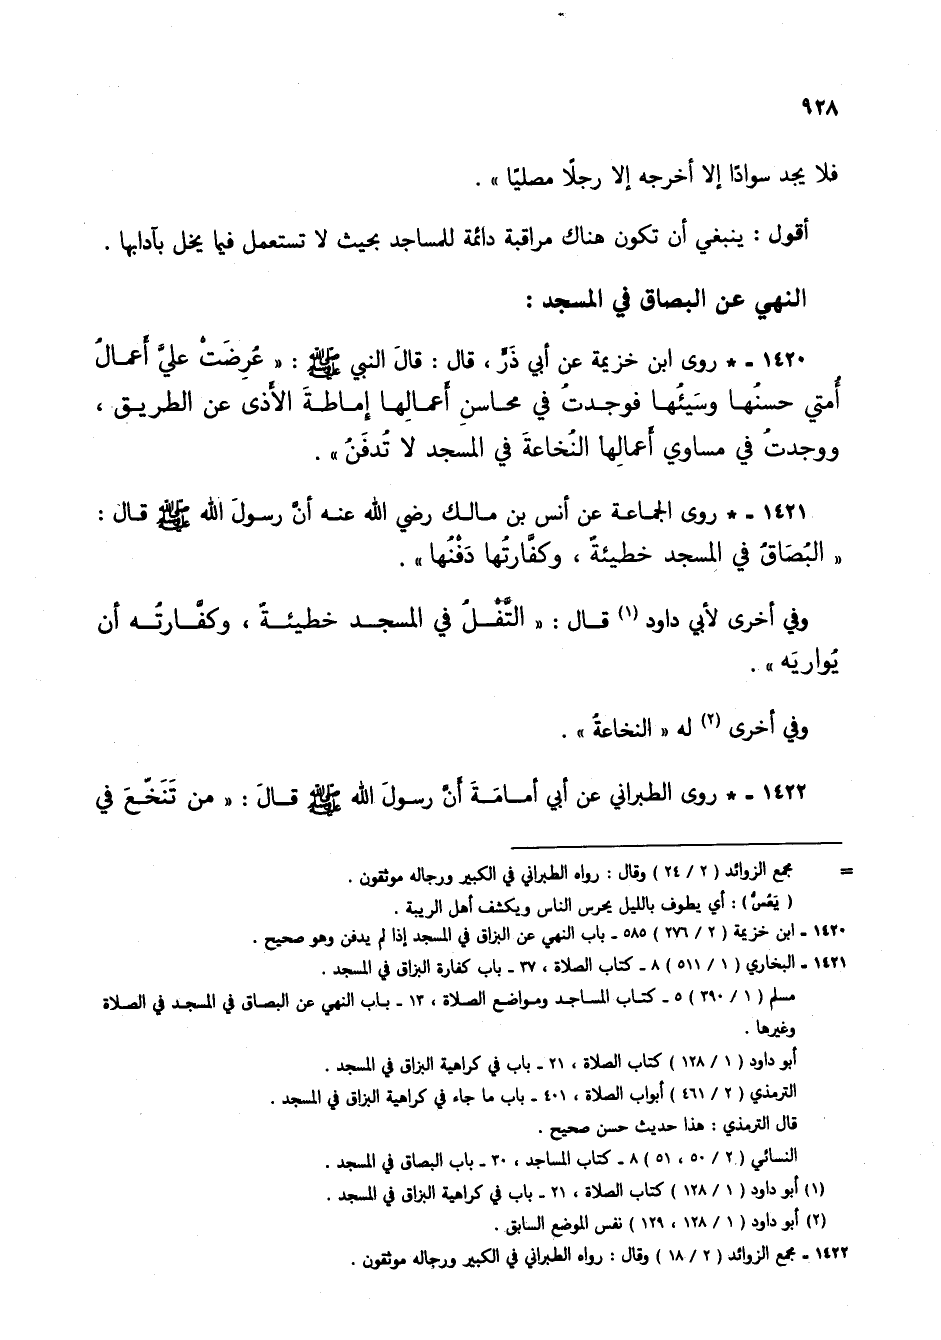 ٩٢٨
فلا يجد سوادًا إلا أخرجه إلا رجلًا مصليًا » .
أقول : ينبغي أن تكون هناك مراقبة دائمة للمساجد بحيث لا تستعمل فيما يخل بآدابها .
النهي عن البصاق في المسجد :
١٤٢٠ - * روى ابن خزيمة عن أبي ذَرٍّ ، قال : قالَ النبي ﷺ : « عُرِضَتْ عليَّ أَعمالُ
أُمتي حسنُها وسَيئُها فوجدتُ في محاسنِ أَعمالِها إماطةَ الأذى عن الطريق ،
ووجدتُ في مساوي أَعمالِها النُخاعةَ في المسجد لا تُدفَنُ » .
١٤٢١ - * روى الجماعة عن أنس بن مالك رضي الله عنه أنَّ رسولَ الله ﷺ قال :
« البُصَاقُ في المسجد خطيئةٌ ، وكفَّارتُها دَفْنُها » .
وفي أخرى لأبي داود (١) قال : « التَّفْلُ في المسجد خطيئةٌ ، وكفَّارتُه أن
يُواريَه » .
وفي أخرى (٢) له « النخاعةُ » .
١٤٢٢ - * روى الطبراني عن أبي أمامَةَ أَنَّ رسولَ الله ﷺ قالَ : « من تَنَخّعَ في
= مجمع الزوائد ( ٢ / ٢٤ ) وقال : رواه الطبراني في الكبير ورجاله موثقون .
( يَعُسُّ ) : أي يطوف بالليل يحرس الناس ويكشف أهل الريبة .
١٤٢٠ - ابن خزيمة ( ٢ / ٢٧٦ ) ٥٨٥ - باب النهي عن البزاق في المسجد إذا لم يدفن وهو صحيح .
١٤٢١ - البخاري ( ١ / ٥١١ ) ٨ - كتاب الصلاة ، ٣٧ - باب كفارة البزاق في المسجد .
مسلم ( ١ / ٣٩٠ ) ٥ - كتاب المساجد ومواضع الصلاة ، ١٣ - باب النهي عن البصاق في المسجد في الصلاة
وغيرها .
أبو داود ( ١ / ١٢٨ ) كتاب الصلاة ، ٢١ - باب في كراهية البزاق في المسجد .
الترمذي ( ٢ / ٤٦١ ) أبواب الصلاة ، ٤٠١ - باب ما جاء في كراهية البزاق في المسجد .
قال الترمذي : هذا حديث حسن صحيح .
النسائي ( ٢ / ٥٠ ، ٥١ ) ٨ - كتاب المساجد ، ٣٠ - باب البصاق في المسجد .
(١) أبو داود ( ١ / ١٢٨ ) كتاب الصلاة ، ٢١ - باب في كراهية البزاق في المسجد .
(٢) أبو داود ( ١ / ١٢٨ ، ١٢٩ ) نفس الموضع السابق .
١٤٢٢ - مجمع الزوائد ( ٢ / ١٨ ) وقال : رواه الطبراني في الكبير ورجاله موثقون .